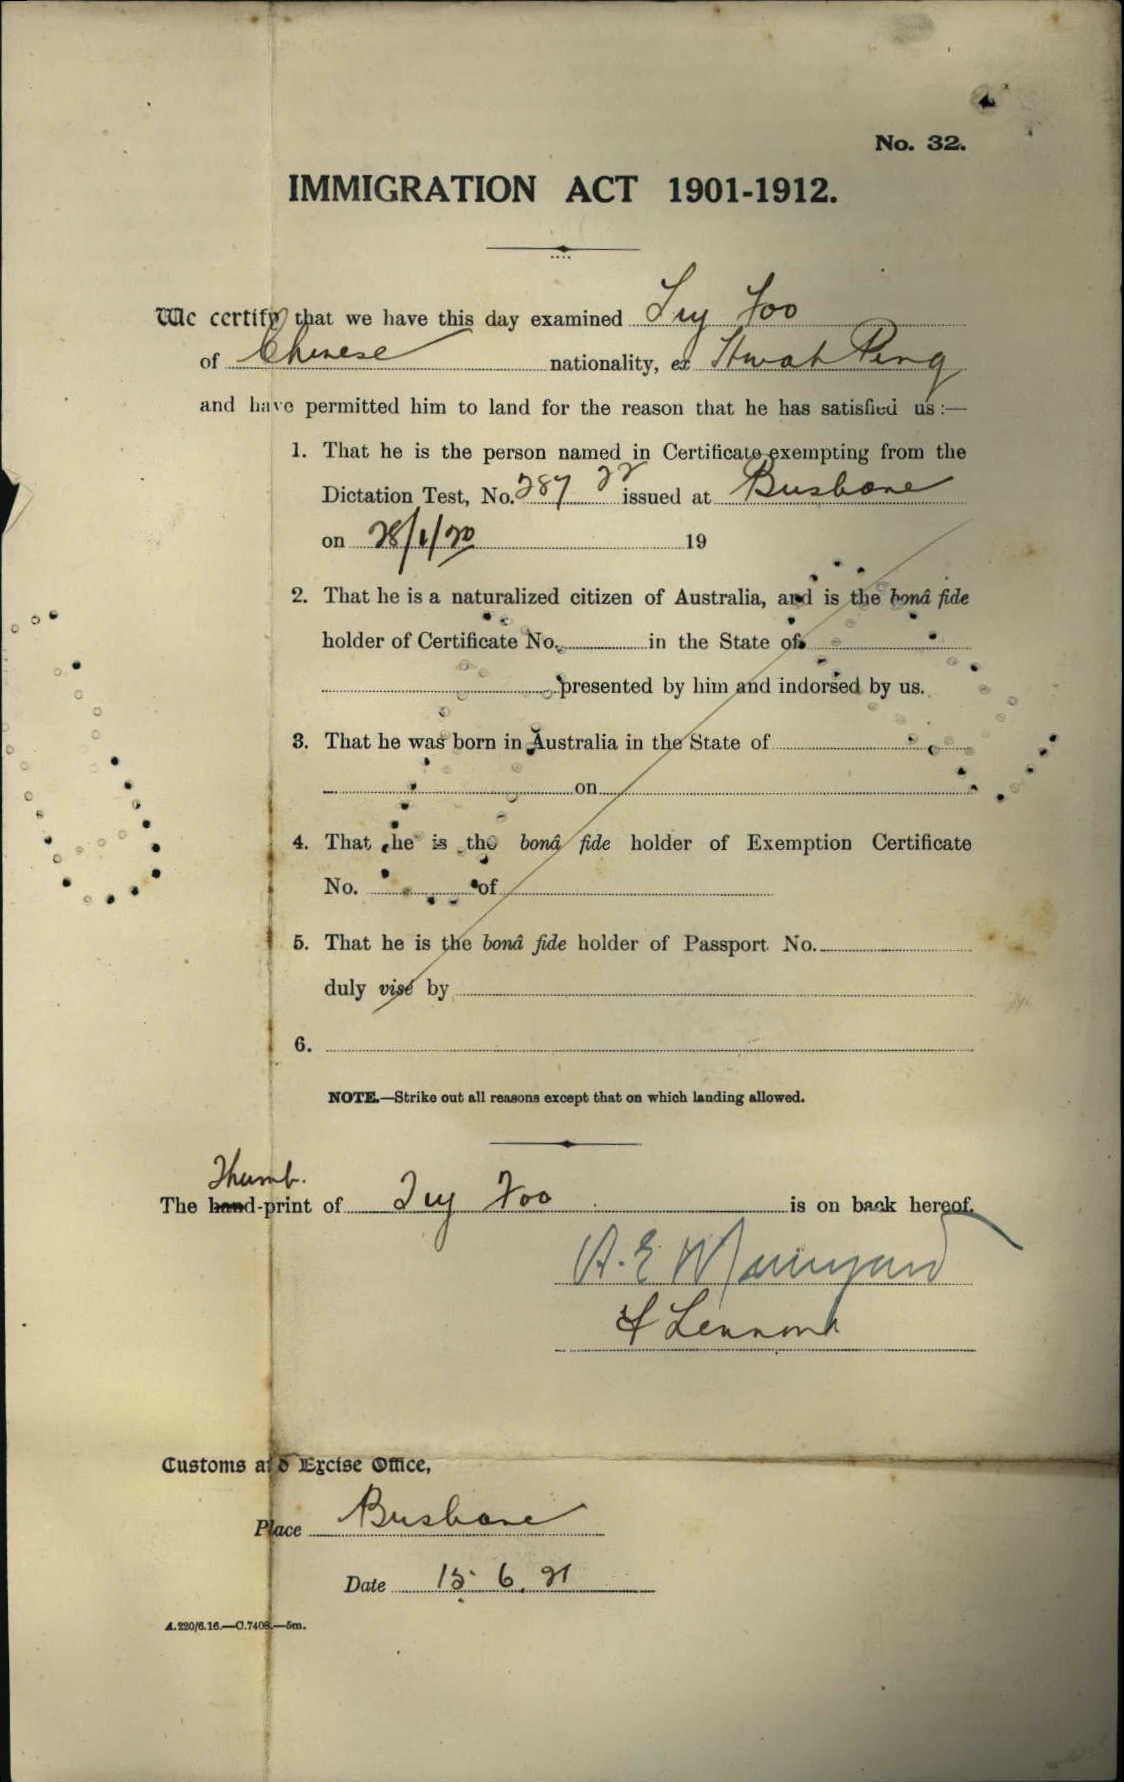 No. 32.
IMMIGRATION ACT 1901-1912.
We certify that we have this day examined Foo
of Chinese nationality, ex Hwah Ping
and have permitted him to land for the reason that he has satisfied us:—
1. That he is the person named in Certificate exempting from the
Dictation Test, No. 287 22 issued at Brisbane
on 28/1/20 19
2. That he is a naturalized citizen of Australia, and is the bonâ fide
holder of Certificate No. in the State of
presented by him and indorsed by us.
3. That he was born in Australia in the State of
on
4. That he is the bonâ fide holder of Exemption Certificate
No. of
5. That he is the bonâ fide holder of Passport No.
duly visé by
6.
NOTE.—Strike out all reasons except that on which landing allowed.
Thumb.
The hand-print of Foo is on back hereof.
A. E.
Lennon
Customs and Excise Office,
Place Brisbane
Date 15. 6. 21
A.220/6.16.—C.7408.—5m.